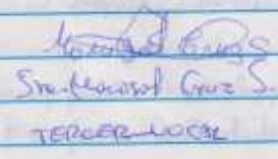 Sra. Marisol Cruz S.
TERCER VOCAL